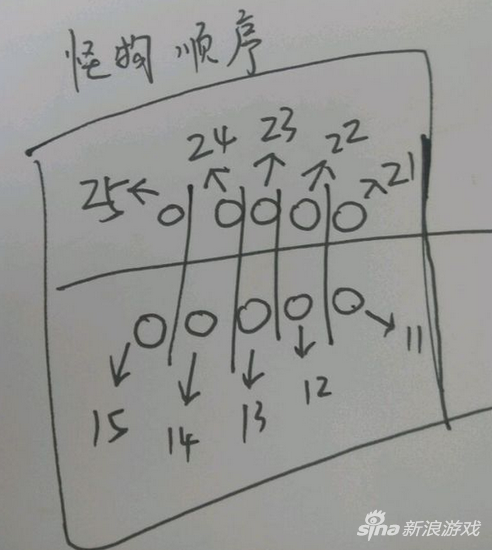 怪物 顺序
25 24 23 22 21
15 14 13 12 11
sina 新浪游戏